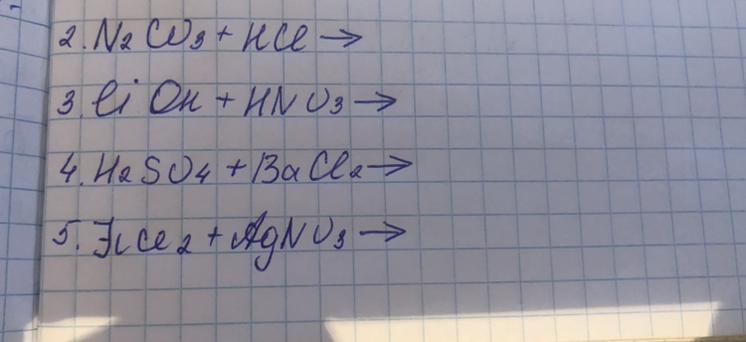 2. N2 CO3 + HCl →
3. Li OH + HNO3 →
4. H2SO4 + BaCl2 →
5. FeCl2 + AgNO3 →